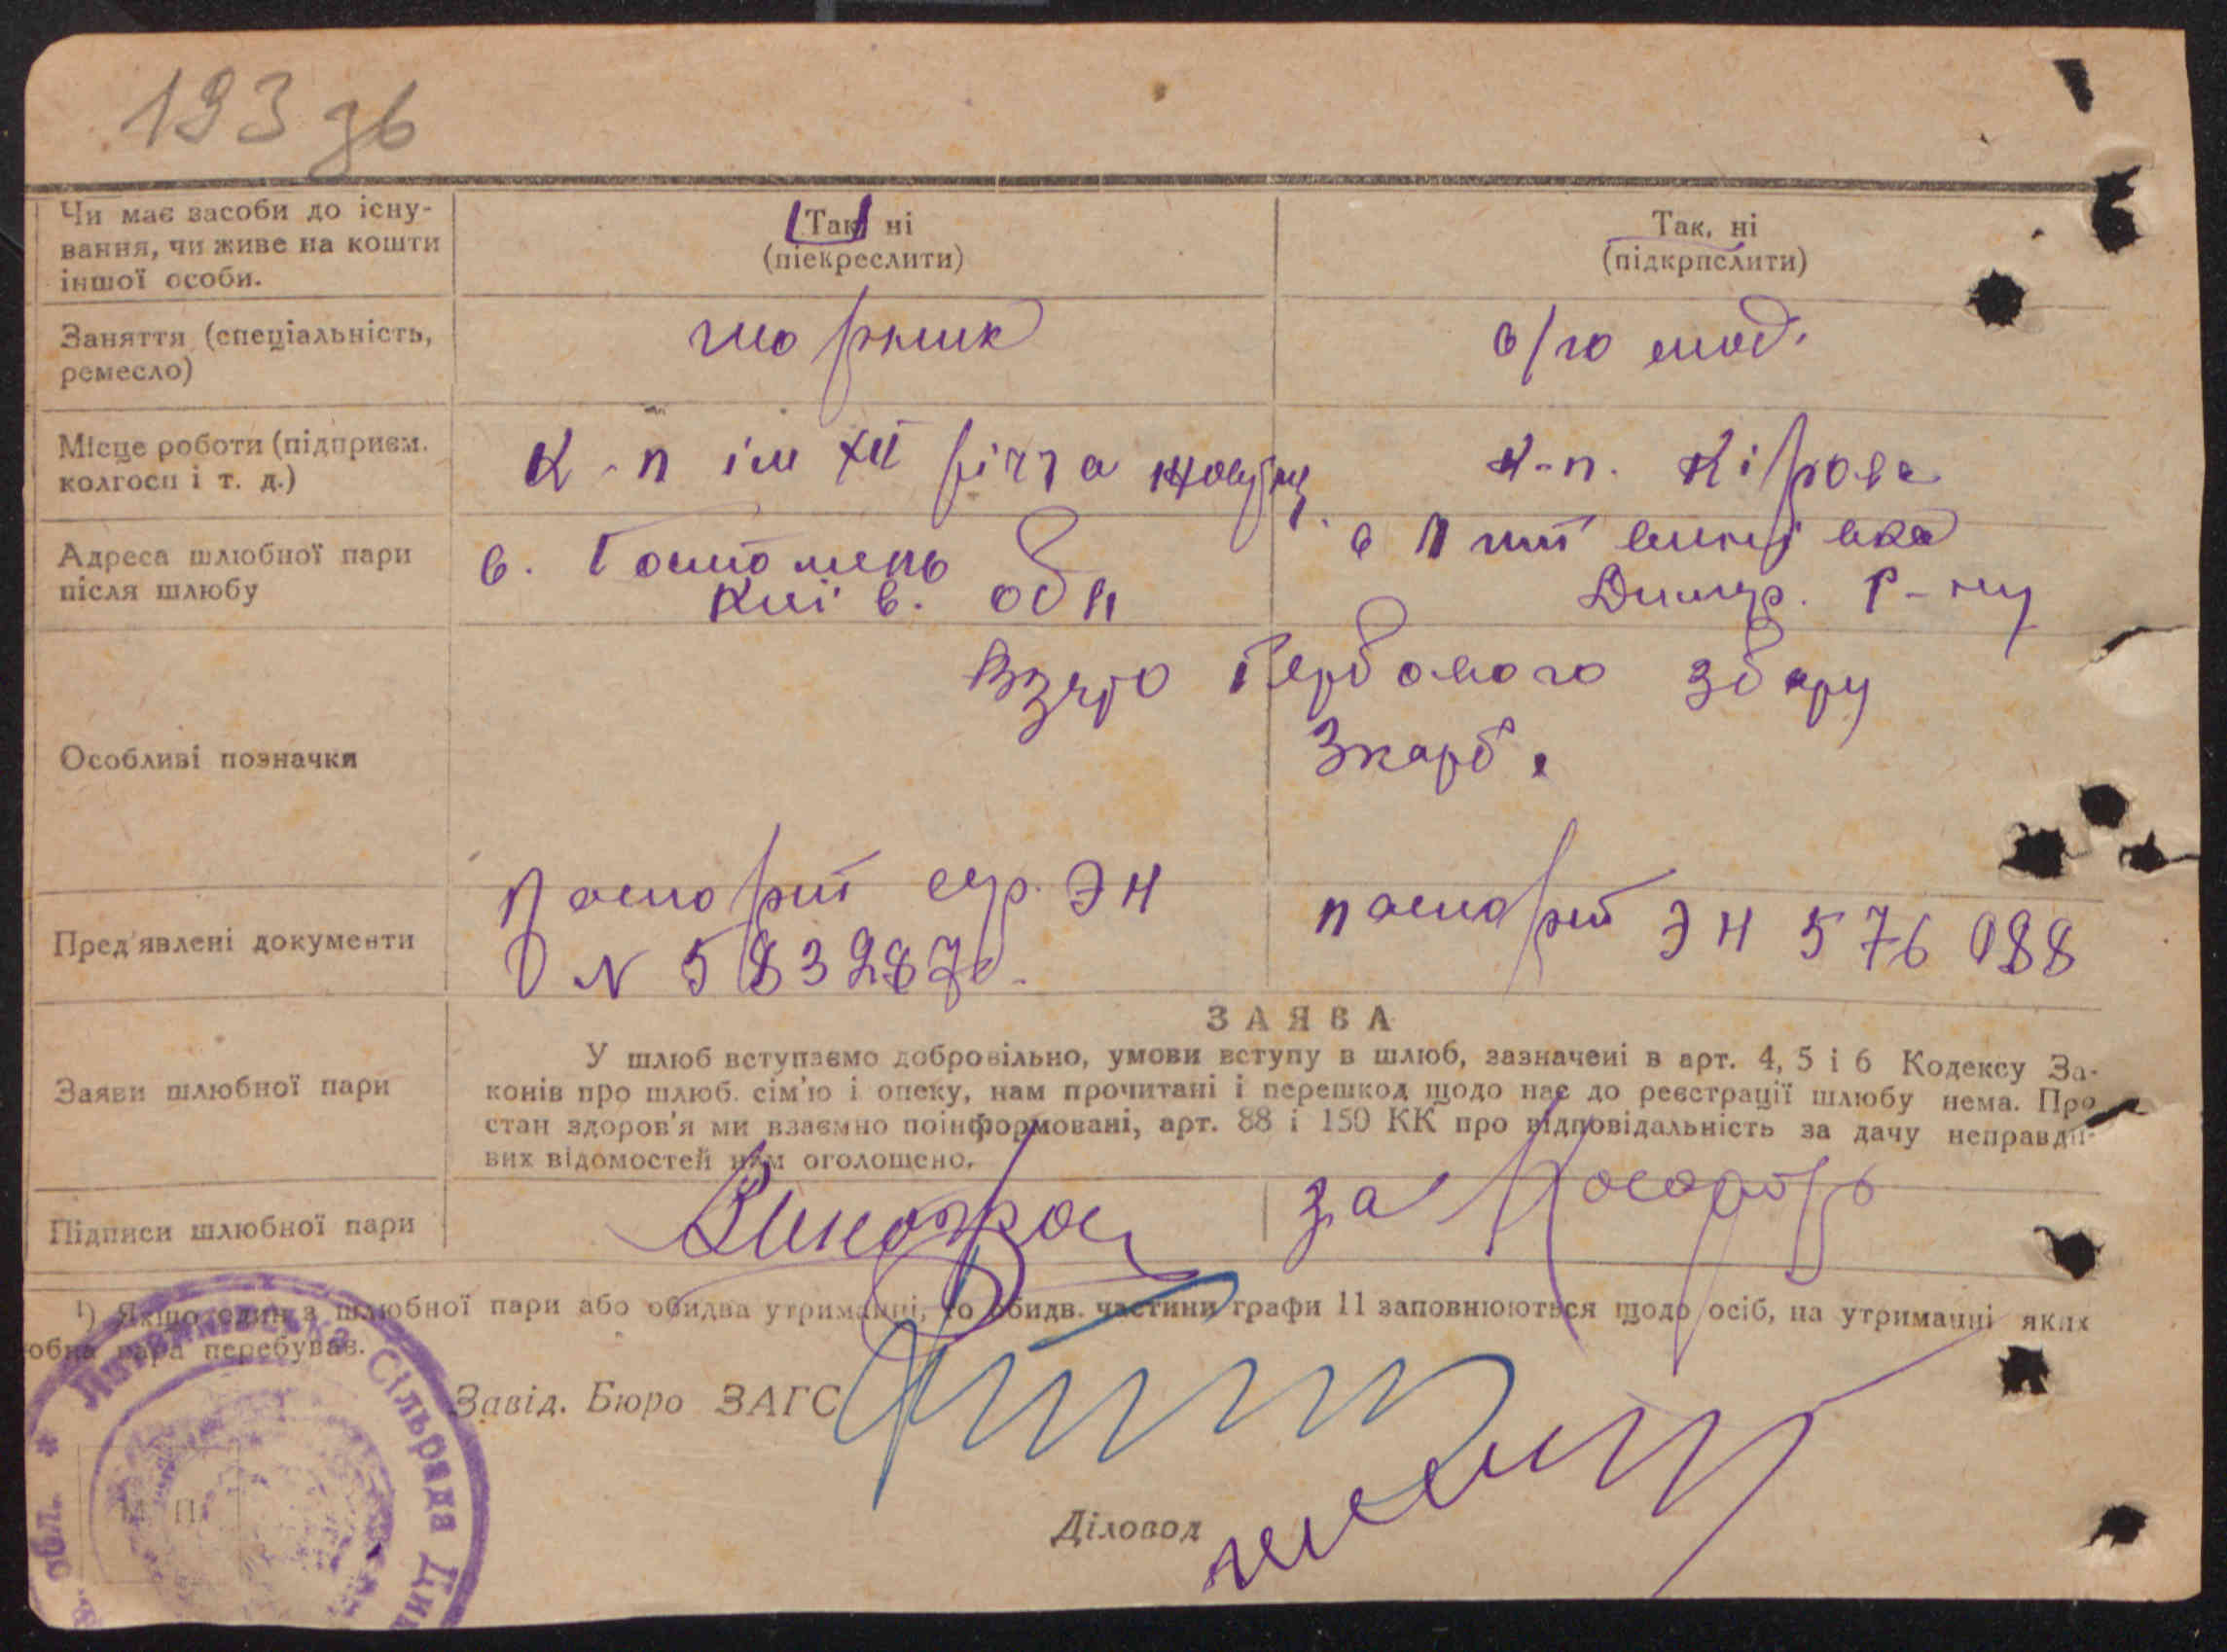 193 зв
Чи має засоби до існу-
вання, чи живе на кошти
іншої особи.
Так, ні
(піекреслити)
Так, ні
(підкрпслити)
Заняття (спеціальність,
ремесло)
шорник
с/го
Місце роботи (підприєм.
колгосп і т. д.)
К-п ім XII річча
к-п. Кірова
Адреса шлюбної пари
після шлюбу
с. Гостомель
Київ. обл
с Литвинівка
Димер. р-ну
Особливі позначки
Взято Гербового збору
3 карб.
Пред'явлені документи
Паспорт сер. ЭН
N 583287
паспорт ЭН 576 088
Заяви шлюбної пари
ЗАЯВА
У шлюб вступаємо добровільно, умови вступу в шлюб, зазначені в арт. 4, 5 і 6 Кодексу За-
конів про шлюб. сім'ю і опеку, нам прочитані і перешкод щодо нас до реєстрації шлюбу нема. Про
стан здоров'я ми взаємно поінформовані, арт. 88 і 150 КК про відповідальність за дачу неправди-
вих відомостей нам оголощено.
Підписи шлюбної пари
за
¹) Якщо один з шлюбної пари або обидва утриманці, то обидв. частини графи 11 заповнюються щодо осіб, на утриманні яких
юбна пара перебуває.
Завід. Бюро ЗАГС
Діловод
М. П.
Литвинівська Сільрада
обл.